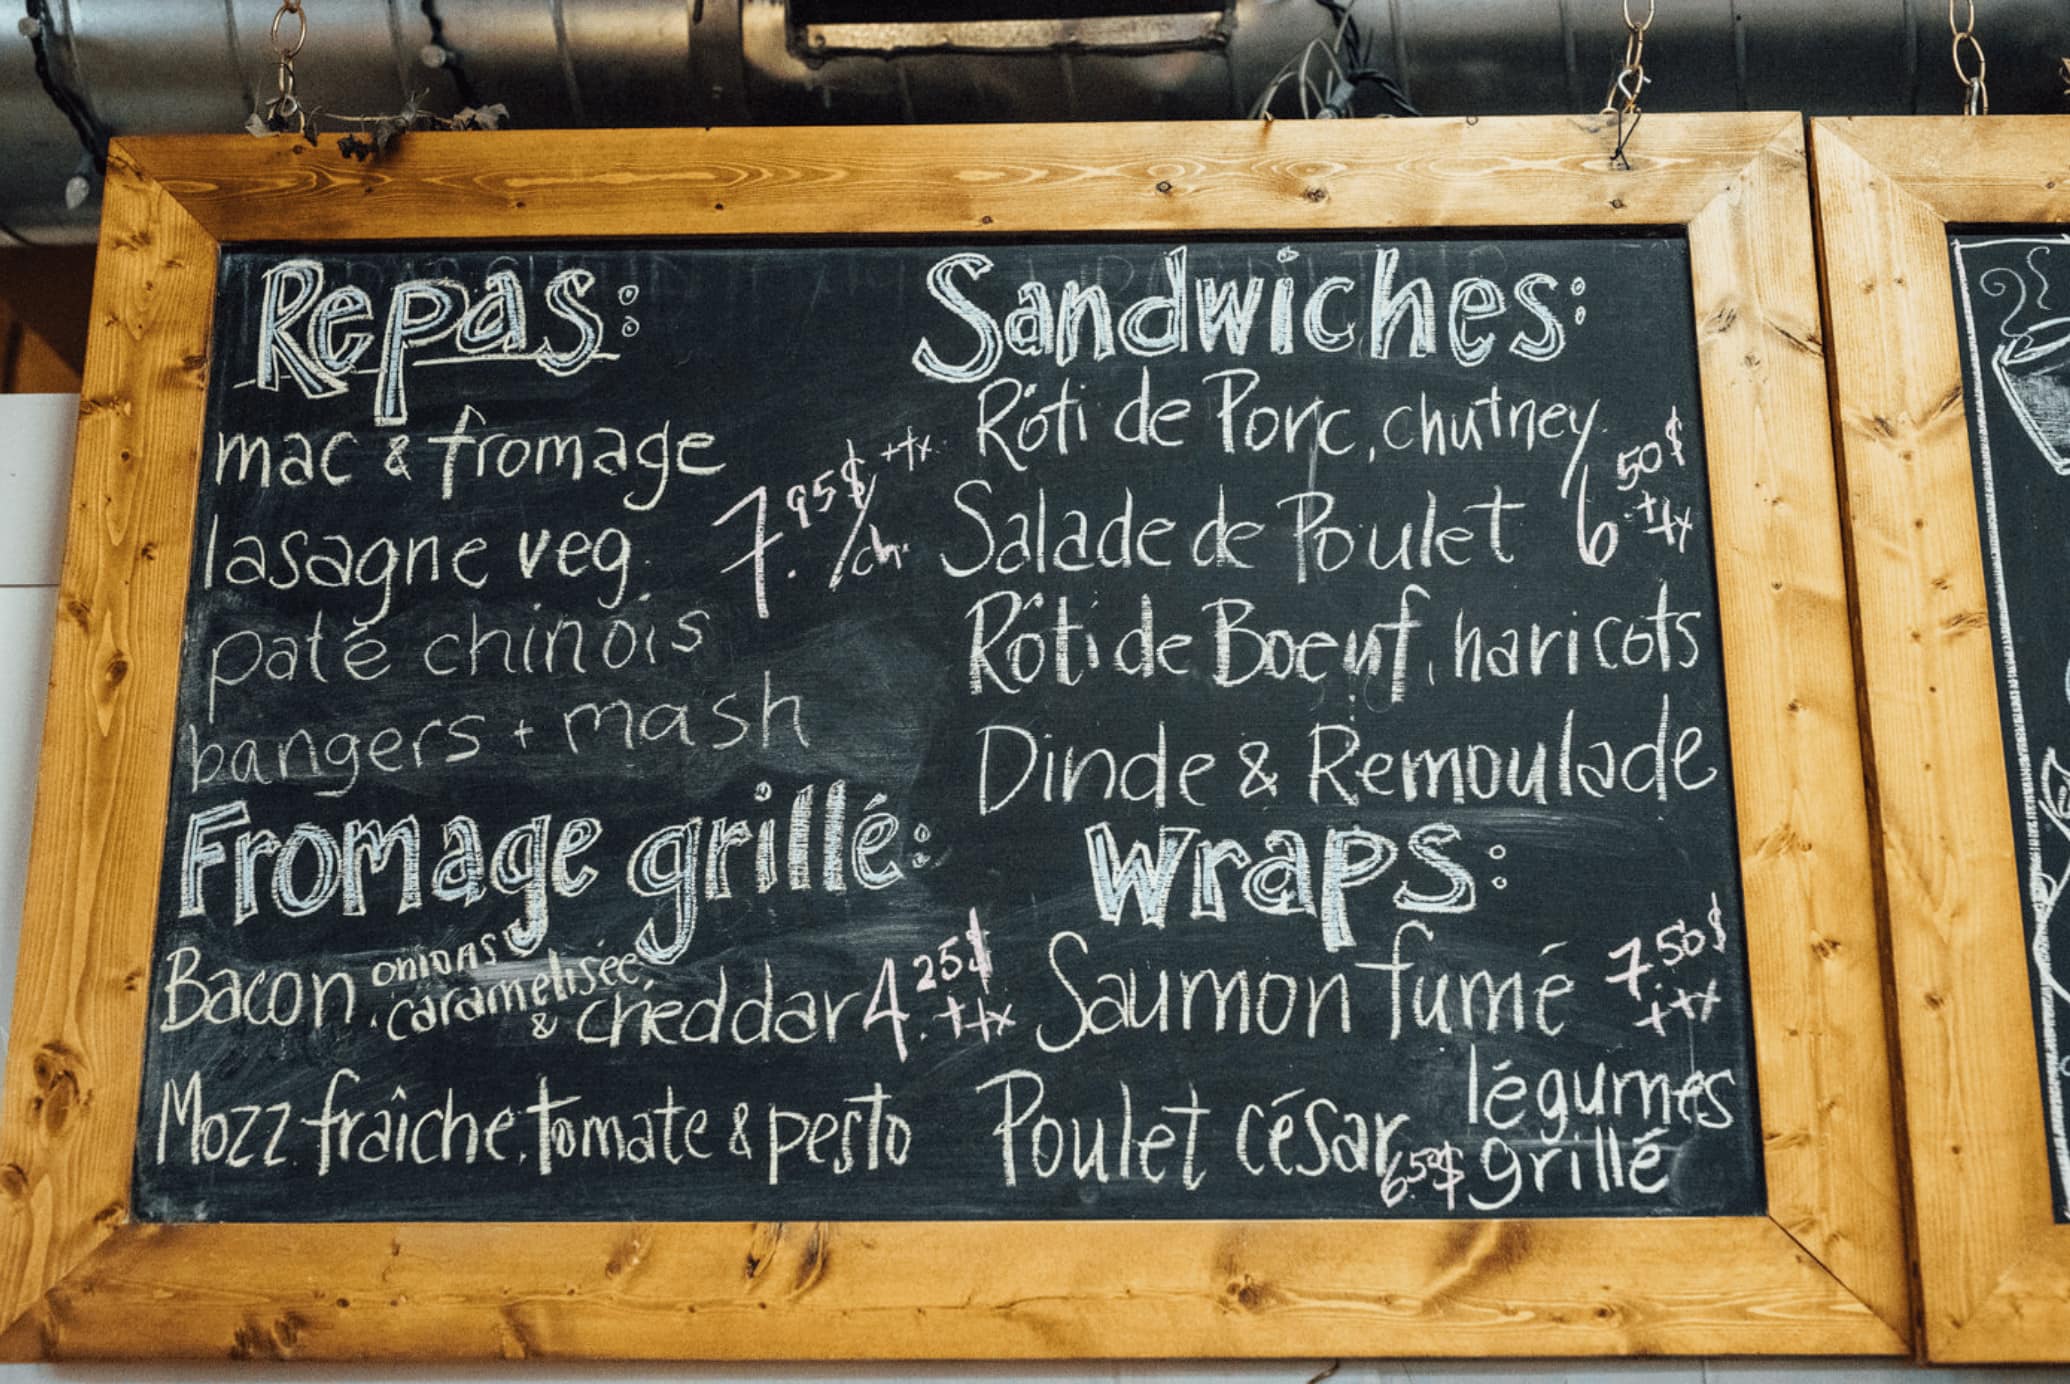 Repas:
mac & fromage
lasagne veg.
7.95$ +tx
/ch.
paté chinois
bangers + mash
Fromage grillé:
Bacon, onions caramelisée & cheddar 4.25$ +tx
Mozz. fraîche, tomate & pesto
Sandwiches:
Rôti de Porc, chutney
Salade de Poulet 6.50$ +tx
Rôti de Boeuf, haricots
Dinde & Remoulade
Wraps:
Saumon fumé 7.50$ +tx
Poulet césar 6.50$
légumes
grillé